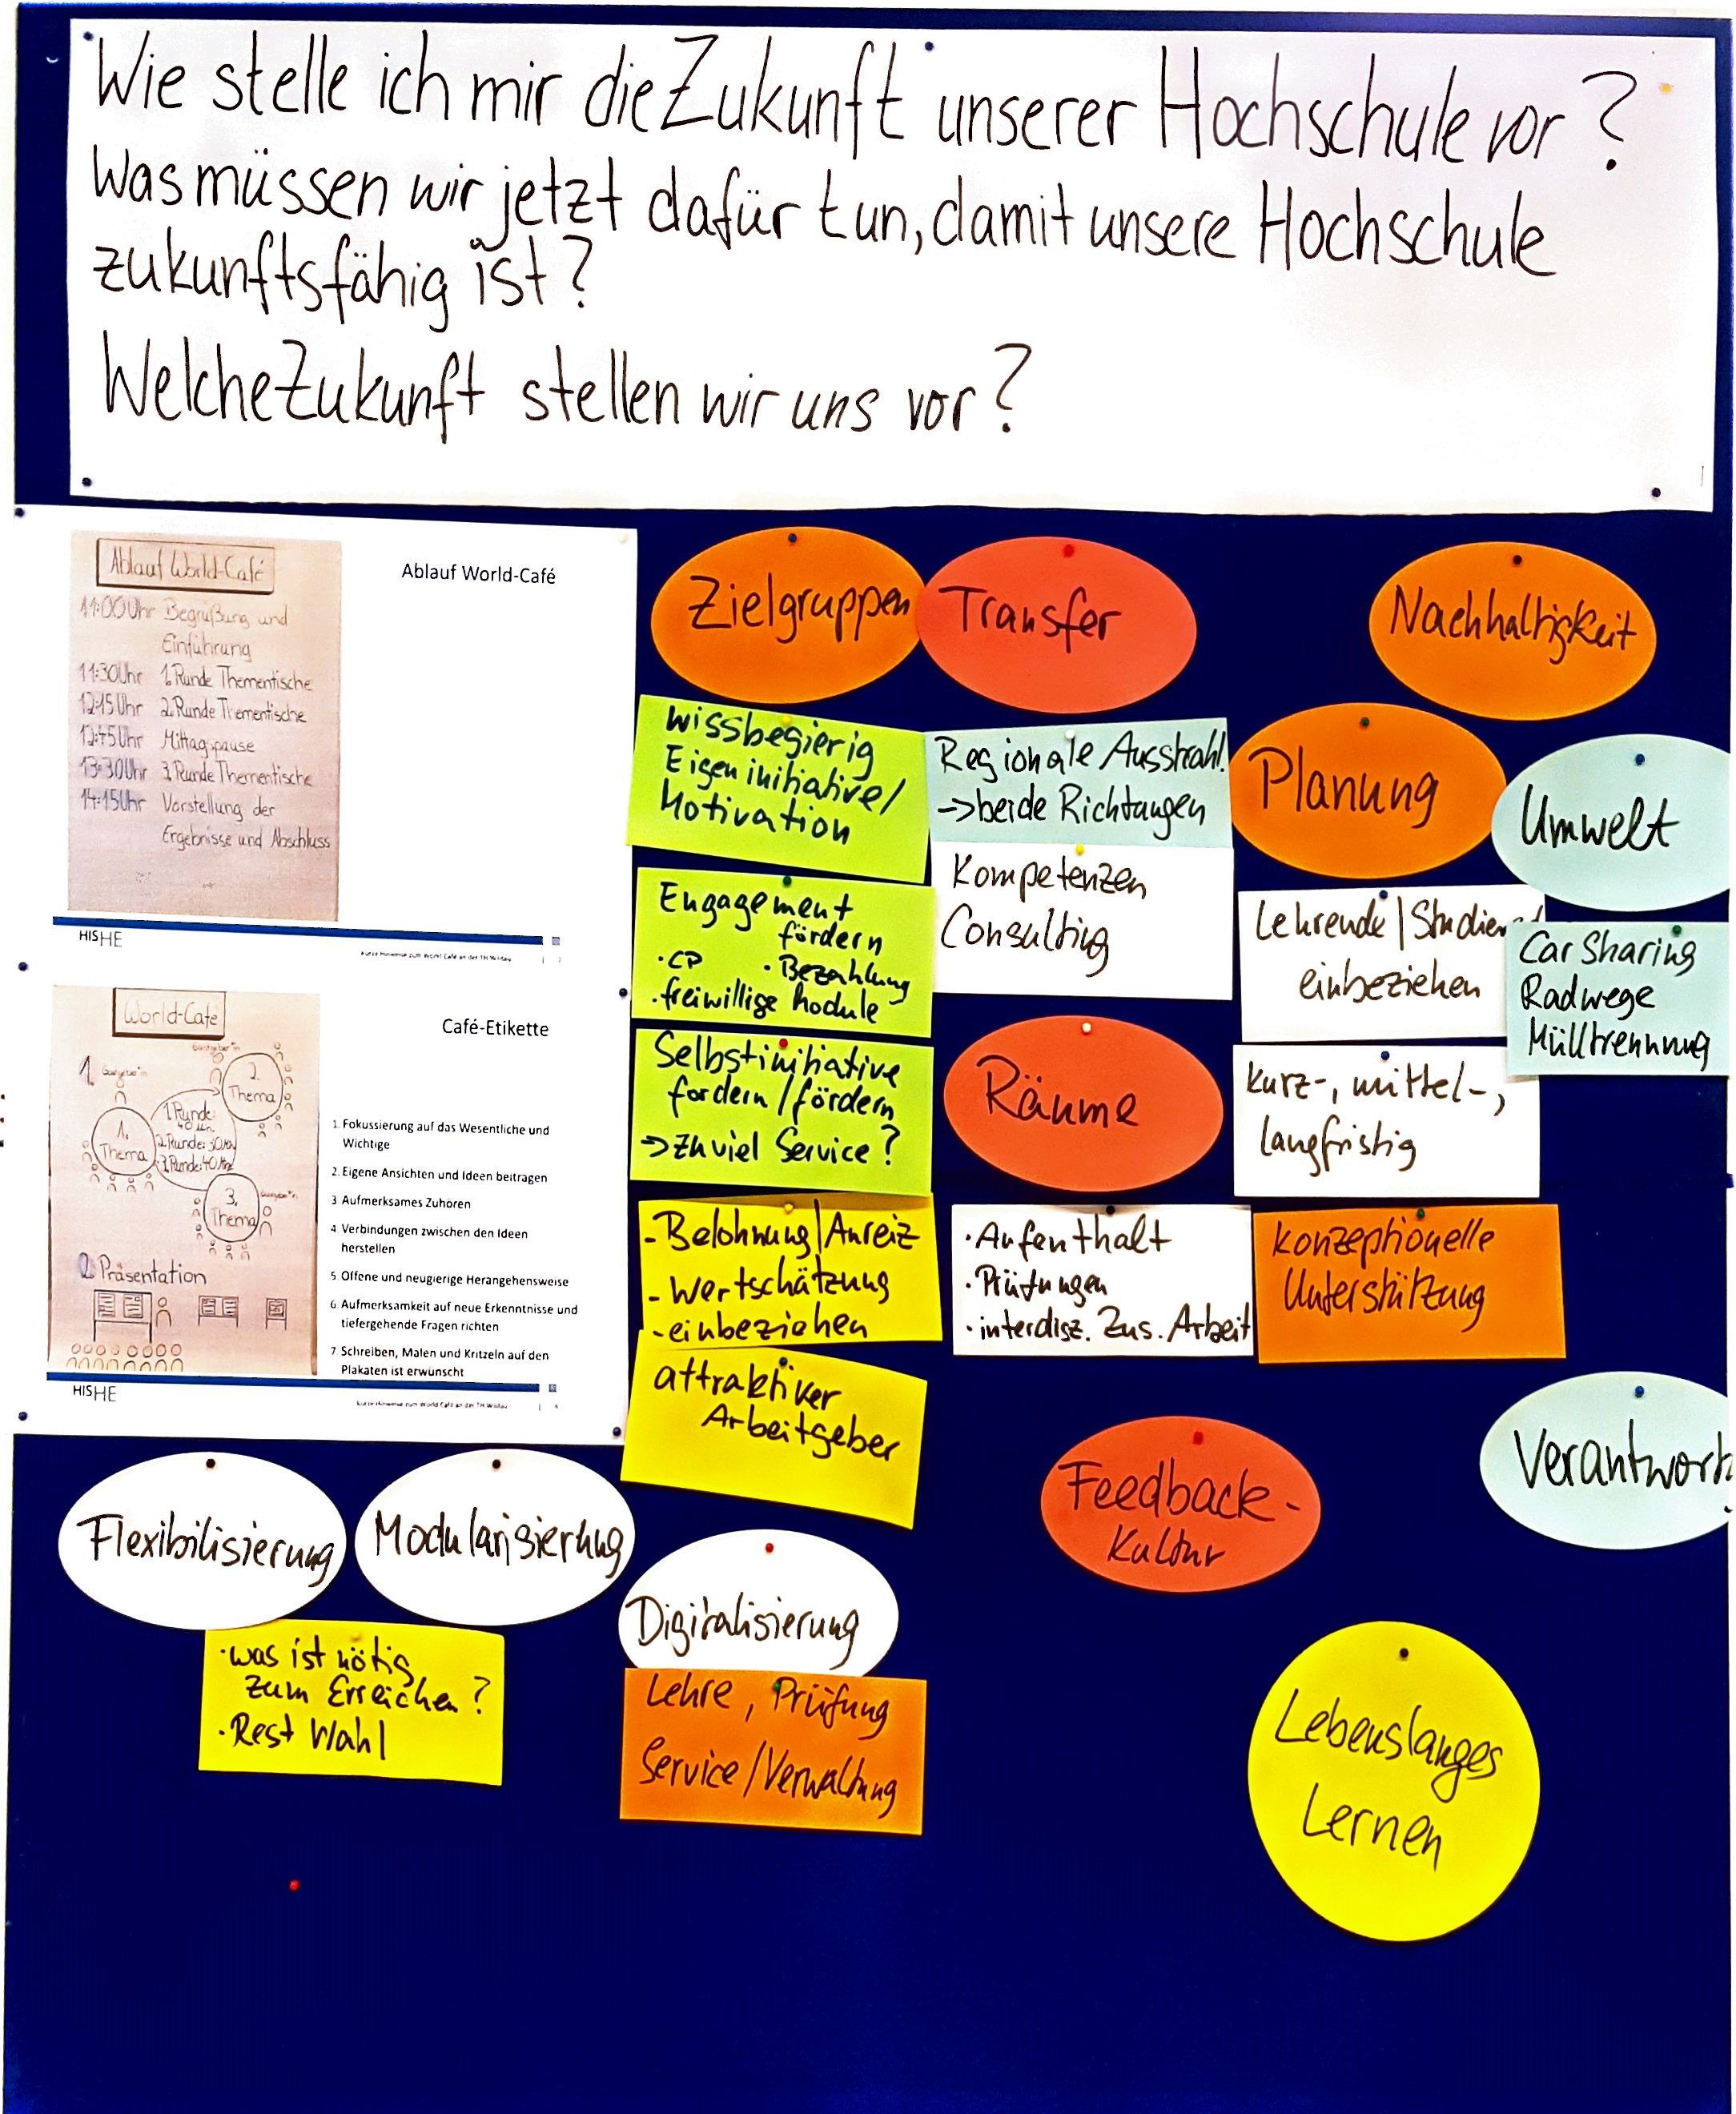 Wie stelle ich mir die Zukunft unserer Hochschule vor?
Was müssen wir jetzt dafür tun, damit unsere Hochschule
zukunftsfähig ist?
Welche Zukunft stellen wir uns vor?
Ablauf World-Café
Ablauf World-Café
11:00 Uhr Begrüßung und
Einführung
11:30 Uhr 1. Runde Thementische
12:15 Uhr 2. Runde Thementische
12:45 Uhr Mittagspause
13:30 Uhr 3. Runde Thementische
14:15 Uhr Vorstellung der
Ergebnisse und Abschluss
HISHE
Kurze Hinweise zum World Café an der TH Wildau
World-Café
Café-Etikette
1.
Gastgeber*in
Gastgeber*in
2.
Thema
1.
Thema
1. Runde:
40 Min.
2. Runde: 30 Min
3. Runde: 40 Min
Gastgeber*in
3.
Thema
2. Präsentation
1. Fokussierung auf das Wesentliche und
Wichtige
2. Eigene Ansichten und Ideen beitragen
3 Aufmerksames Zuhören
4 Verbindungen zwischen den Ideen
herstellen
5. Offene und neugierige Herangehensweise
6. Aufmerksamkeit auf neue Erkenntnisse und
tiefergehende Fragen richten
7 Schreiben, Malen und Kritzeln auf den
Plakaten ist erwünscht
HISHE
Kurze Hinweise zum World Café an der TH Wildau
Zielgruppen
wissbegierig
Eigeninitiative/
Motivation
Engagement
fördern
· CP · Bezahlung
· freiwillige Module
Selbstinitiative
fordern/fördern
→ zu viel Service?
- Belohnung/Anreiz
- Wertschätzung
- einbeziehen
attraktiver
Arbeitgeber
Transfer
Regionale Ausstrahl.
→ beide Richtungen
Kompetenzen
Consulting
Räume
· Aufenthalt
· Prüfungen
· interdisz. Zus. Arbeit
Nachhaltigkeit
Planung
Lehrende/Studier
einbeziehen
kurz-, mittel-,
langfristig
konzeptionelle
Unterstützung
Umwelt
Car Sharing
Radwege
Mülltrennung
Verantwort
Feedback-
Kultur
Flexibilisierung
Modularisierung
· was ist nötig
zum Erreichen?
· Rest Wahl
Digitalisierung
Lehre, Prüfung
Service/Verwaltung
Lebenslanges
Lernen